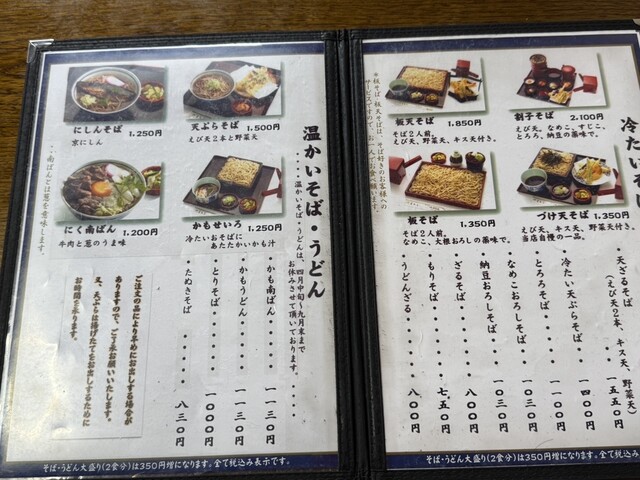 にしんそば 1,250円
京にしん
天ぷらそば 1,500円
えび天2本と野菜天
にく南ばん 1,200円
牛肉と葱のうま味
かもせいろ 1,250円
冷たいおそばに
あたたかいかも汁
温かいそば・うどん
・・・・温かいそば・うどんは、四月中旬〜九月末まで
お休みさせて頂いております。・・・・
かも南ばん・・・・一一三〇円
かもうどん・・・・一一三〇円
とりそば・・・・一〇〇〇円
たぬきそば・・・・八三〇円
・・南ばんとは葱を意味します。
ご注文の品により早めにお出しする場合が
ありますので、ご了承お願いいたします。
又、天ぷらは揚げたてをお出しするために
お時間を承ります。
そば・うどん大盛り(2食分)は350円増になります。全て税込み表示です。
冷たいそ
板天そば 1,850円
そば2人前。
えび天、野菜天、キス天付き。
割子そば 2,100円
えび天、なめこ、すじこ、
とろろ、納豆の薬味で。
板そば 1,350円
そば2人前。
なめこ、大根おろしの薬味で。
づけ天そば 1,350円
えび天、キス天、野菜天付き。
当店自慢の一品。
*板そば、板天そばは、そば好きのお客様への
サービスですので、お一人でお食べ願います。
天ざるそば・・・・一五五〇円
(えび天2本、キス天、野菜天)
冷たい天ぷらそば・・一四〇〇円
とろろそば・・・・一〇〇〇円
なめこおろしそば・・一〇三〇円
納豆おろしそば・・・一〇三〇円
ざるそば・・・・八〇〇円
もりそば・・・・七五〇円
うどんざる・・・・八〇〇円
そば・うどん大盛り(2食分)は350円増になります。全て税込み